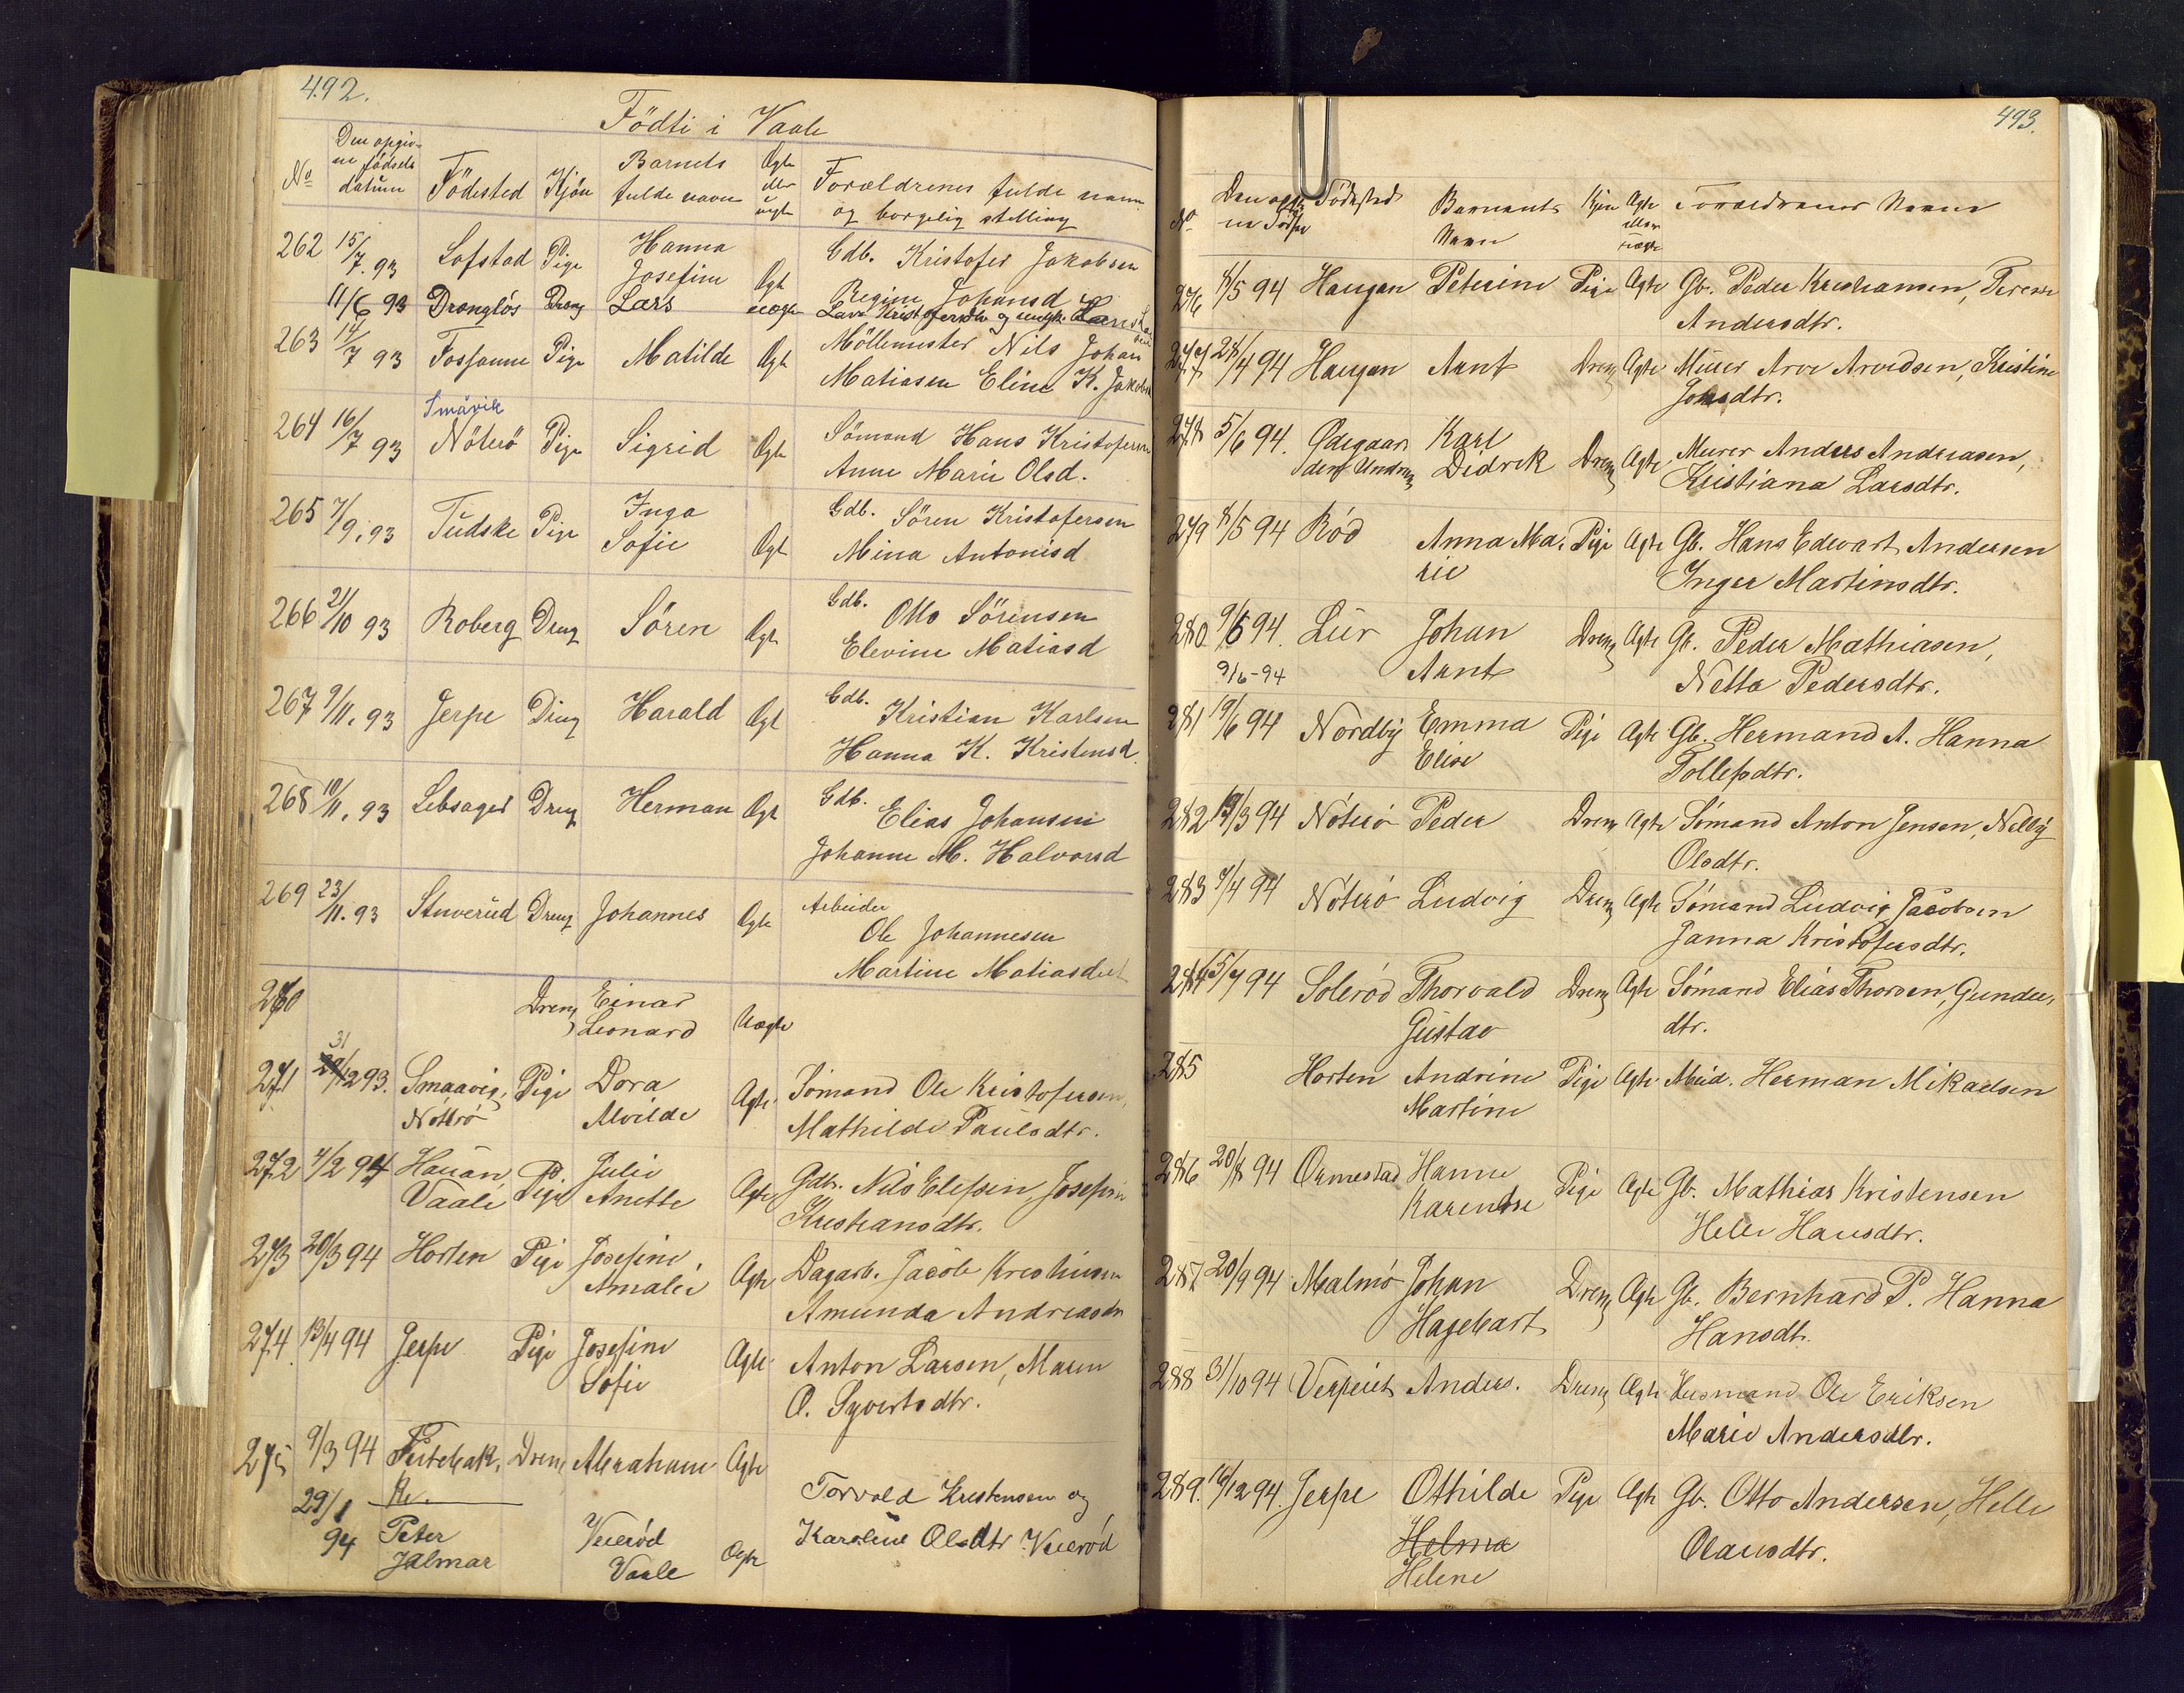 492.
Födti i Vaale
No Den opgiv-ne födsels datum Födested Kjön Barnets fulde navn Ægte eller uægte Forældrenes fulde navn og borgelig stilling
262 15/7. 93 Lofstad Pige Hanna Josefine Ægt Gdb. Kristofer Jakobsen
Regine Johansd
11/6 93 Dronglös Dreng Lars uægte
263 14/7 93 Fossanne Pige Matilde Ægt Möllemester Nils Johan
Matiasen Eline K. Jakobsd
Smårik
264 16/7 93 Nöterö Pige Sigrid Ægte Sömand Hans Kristofersen
Anne Marie Olsd.
265 7/9. 93 Tudske Pige Inga Sofie Ægt Gdb. Sören Kristofersen
Mina Antonisd
266 21/10 93 Roberg Dreng Sören Ægt Gdb. Otto Sörensen
Elevine Matiasd
267 9/11. 93 Jerpe Dreng Harald Ægt Gdb. Kristian Karlsen
Hanna K. Kristensd.
268 10/11. 93 Lebsager Dreng Herman Ægt Gdb. Elias Johansen
Johanne M. Halvorsd
269 23/11. 93 Stuverud Dreng Johannes Ægte Arbeider
Ole Johannesen
Martine Matiasdat
270 Dreng Einar Leonard Uægte
31
271 29/12 93. Smaavig, Nötterö Pige Dora Alvilde Ægte. Sömand Ole Kristofersen,
Mathilde Paulsdtr.
272 4/2 94 Hauan, Vaale Pige Julie Anette Ægte Gdbr. Nils Elefsen, Josefin
Kristiansdtr.
273 20/3 94 Horten Pige Josefine Amalie Ægte Dagarb. Jacob Kristiansen
Amunda Andreasdtr
274 13/4 94 Jerpe Pige Josefine Sofie Ægte. Anton Larsen, Maren
O. Syvertsdtr.
275 9/3 94 Dreng Abraham Ægte
29/1 94 Peter Jalmar Veierød Vaale Ægte Torvald Kristensen og
Karoline Olsdtr Veierød
493.
No. Fødested Barnets Navn Kjøn Ægte eller uægte Forældrenes Navne
276 8/5 94 Haugan Peterine Pige Ægte Gb. Peder Kristiansen,
Andersdtr.
277 28/4 94 Haugan Arnt Dreng Ægte Murer Arve Arvedsen, Kristine
Jonsdtr.
278 5/6 94. Ødegaarden Undrum Karl Didrek Dreng Ægte Murer Anders Andreasen,
Kristiana Larsdtr.
279 8/5 94 Röd Anna Marie Pige Ægte Gb. Hans Edevart Andersen
Inger Martinsdtr.
280 9/6 94. Lur Johan Arnt Dreng Ægte Gb. Peder Mathiasen,
9/6-94 Netta Pedersdtr.
281 19/6 94 Nordby Emma Elise Pige Ægte Gb. Hermand A. Hanna
Tollefsdtr.
282 19/3 94 Nöterö Peder Dreng Ægte Sömand Anton Jensen, Nelly
Olsdtr.
283 9/4 94 Nöterö Ludvig Dreng Ægte Sömand Ludvig Jacobsen
Janna Kristofersdtr.
284 15/7 94 Solerød Thorvald Gustav Dreng Ægte Sömand Elias Thorsen, Gunder,
dtr.
285 Horten Andrine Martine Pige Ægte. Herman Mikaelsen
286 20/8 94 Ormestad Hanne Karentse Pige Ægte Gb. Mathias Kristensen
Helle Hansdtr.
287 20/9 94 Malmö Johan Hagebart Dreng Ægte Gb. Bernhard P. Hanna
Hansdt.
288 31/10 94 Verpeiet Anders. Dreng Ægte Husmand Ole Eriksen
Marie Andersdtr.
289. 16/12 94. Jerpe Othilde Helma Helene Pige Ægte Gb. Otto Andersen, Helle
Olausdtr.